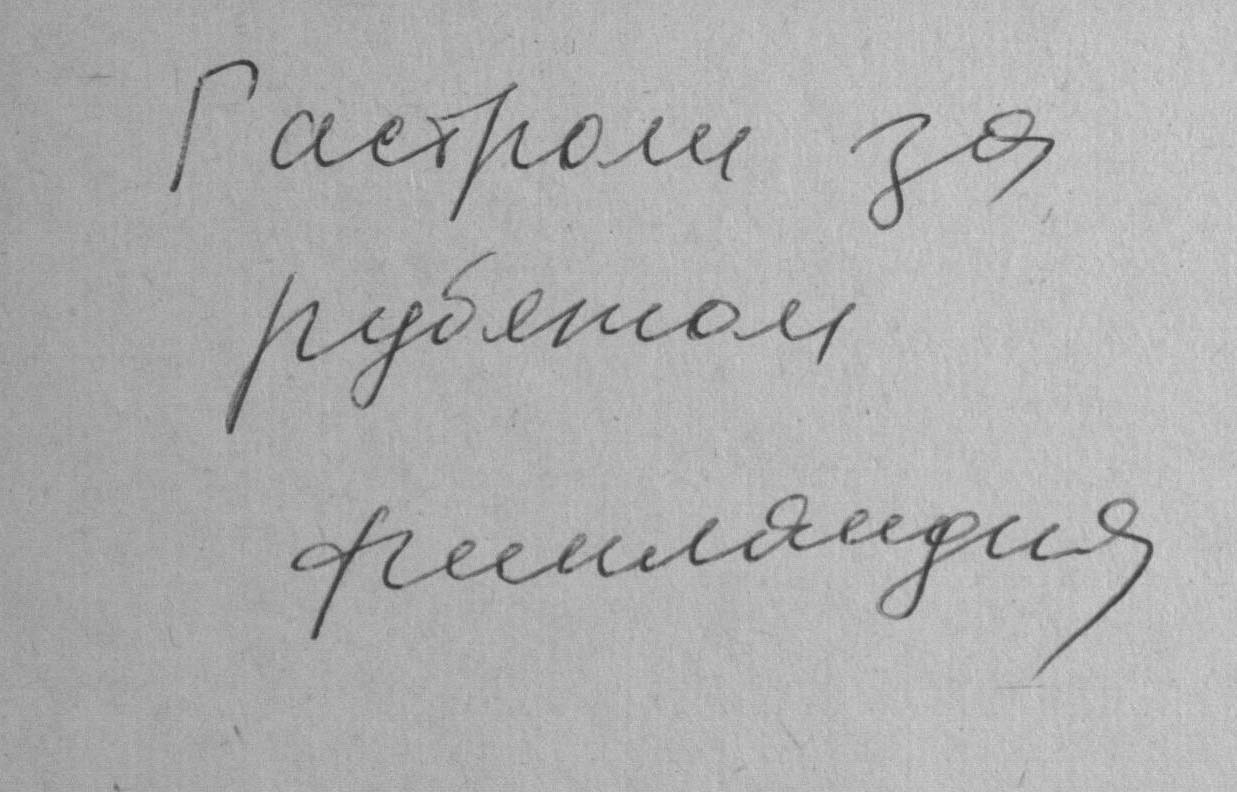 Гастроли за
рубежом
Финляндия